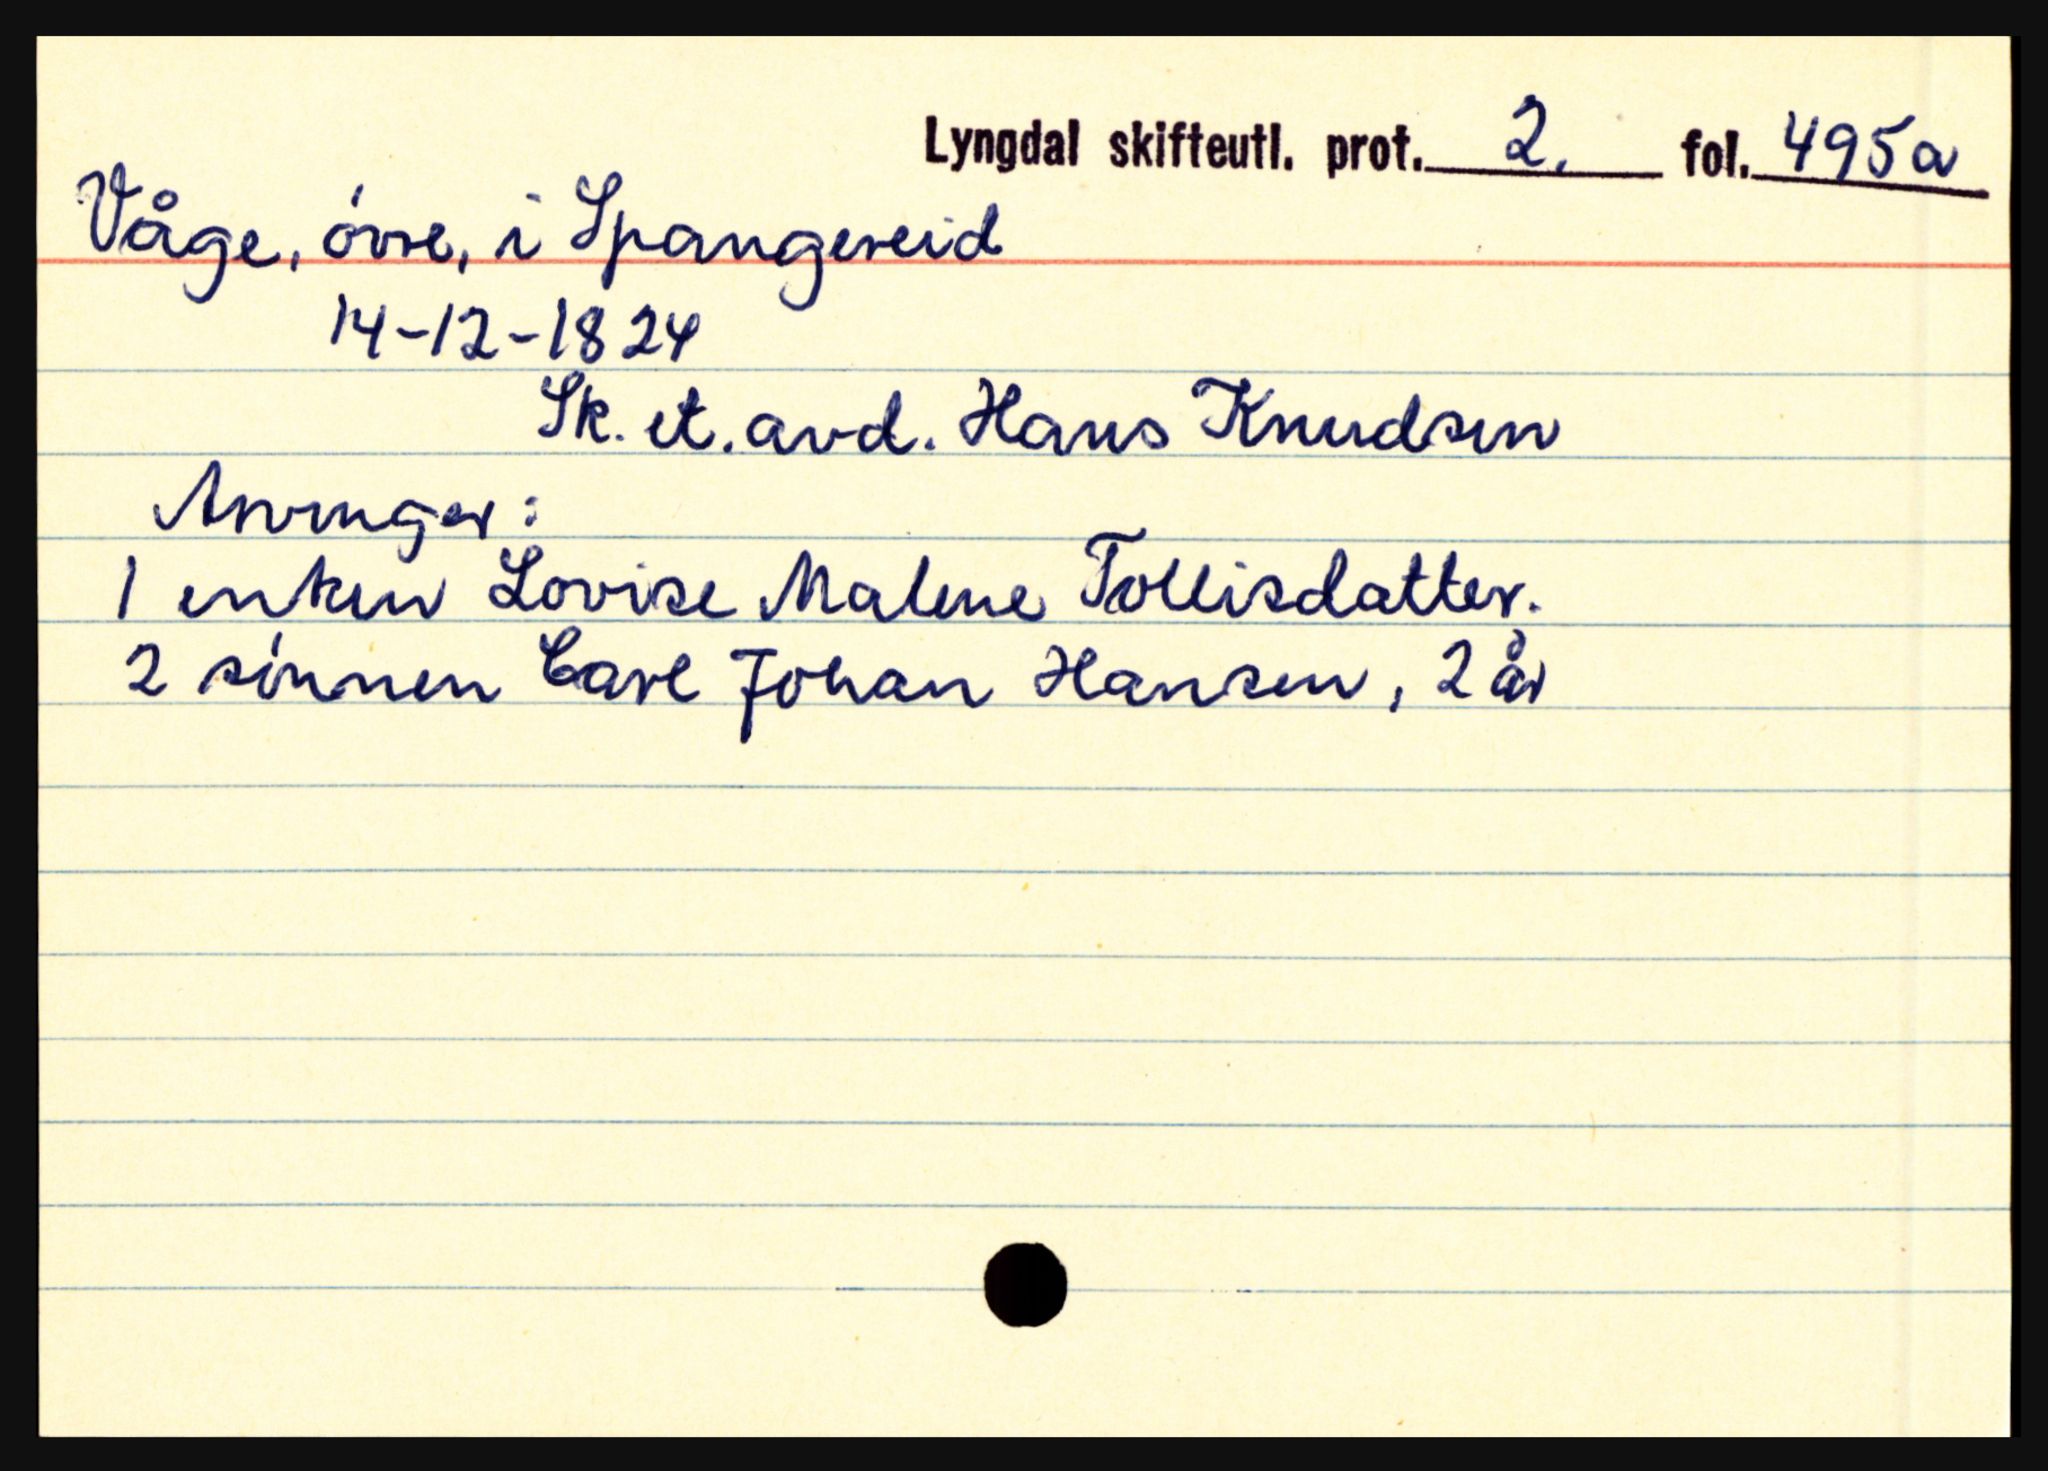 Lyngdal skifteutl. prot. 2. fol. 495a
Våge, óvre, i Spangereid
14-12-1824
Sk. et. avd. Hans Knudsen
Arvinger:
1 enken Lovise Malene Tollisdatter.
2 sónnen Carl Johan Hansen, 2 år